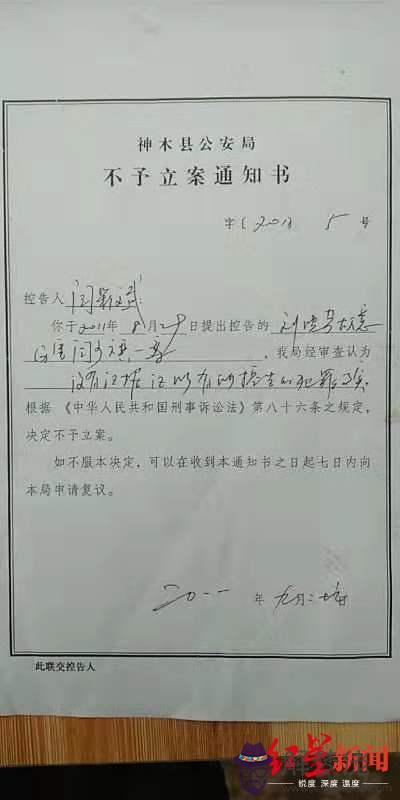 神木县公安局
不予立案通知书
字〔2011 5 号
控告人
你于2011年8月29日提出控告的
，我局经审查认为
没有证据证明有
犯罪事实
根据《中华人民共和国刑事诉讼法》第八十六条之规定，
决定不予立案。
如不服本决定，可以在收到本通知书之日起七日内向
本局申请复议。
二〇一一 年 九月二
此联交控告人
红星新闻
锐度 深度 温度